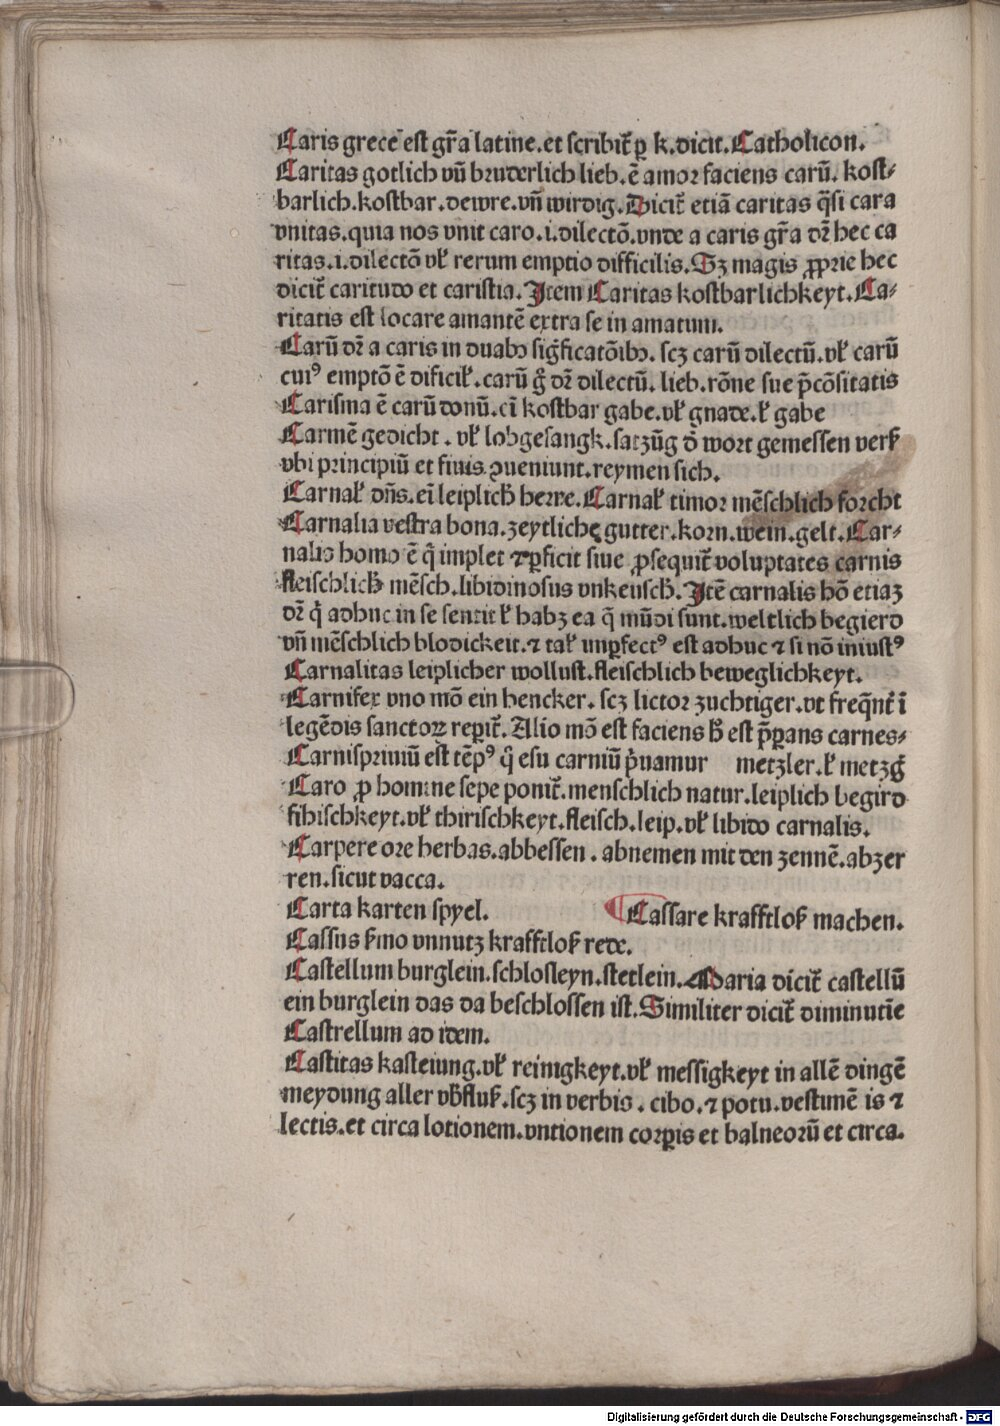 Caris grece est gr̃a latine.et scribit̃ ꝑ k.dicit.Catholicon.
Caritas gotlich vñ bruderlich lieb.ẽ amor faciens carũ.kost-
barlich.kostbar.dewre.vñ wirdig.Dicit̃ etiã caritas q̃si cara
vnitas.quia nos vnit caro.i.dilectõ.vnde a caris gr̃a dr̃ hec ca
ritas.i.dilectõ vl̕ rerum emptio difficilis.Sꝫ magis ꝓprie hec
dicit̃ caritudo et caristia.Item Caritas kostbarlichkeyt.Ca-
ritatis est locare amantẽ extra se in amatum.
Carũ dr̃ a caris in duabꝫ sig̃ficatõibꝫ.scꝫ carũ dilectũ.vl̕ carũ
cuiꝰ emptõ ẽ dificil̕.carũ g̊ dr̃ dilectũ.lieb.rõne sue p̃cõsitatis
Carisma ẽ carũ donũ.eĩ kostbar gabe.vl̕ gnade.l̕ gabe
Carmẽ gedicht.vl̕ lobgesangk.satzũg d̕ wort gemessen vers̕
vbi principiũ et finis ꝯueniunt.reymen sich.
Carnal̕ dñs.eĩ leiplich̕ herre.Carnal̕ timor mẽschlich forcht
Carnalia vestra bona.zeytliche gutter.korn.wein.gelt.Car-
nalis homo ẽ q̇ implet ⁊ ꝑficit siue ꝓsequit̃ voluptates carnis
fleischlich̕ mẽsch.libidinosus vnkeusch̕.Itẽ carnalis hõ etiaꝫ
dr̃ q̇ adhuc in se sentit l̕ habꝫ ea q̃ mũdi sunt.weltlich begierd
vñ mẽschlich blodickeit.⁊ tal̕ unꝑfectꝰ est adhuc ⁊ si nõ iniustꝰ
Carnalitas leiplicher wollust.fleischlich beweglichkeyt.
Carnifex vno mõ ein hencker.scꝫ lictor zuchtiger.vt freq̃nt̕ ĩ
legẽdis sanctoꝝ reꝑit̃.Alio mõ est faciens l̕ est p̃ꝑans carnes-
Carnispriuiũ est tẽpꝰ q̊ esu carniũ ṗuamur metzler.l̕ metzg̕
Caro ꝓ homine sepe ponit̃.menschlich natur.leiplich begird
fihischkeyt.vl̕ thirischkeyt.fleisch.leip.vl̕ libido carnalis.
Carpere ore herbas.abbessen.abnemen mit den zennẽ.abzer
ren.sicut vacca.
Carta karten spyel. Cassare krafftlos̕ machen.
Cassus s̕mo vnnutz krafftlos̕ rede.
Castellum burglein.schlosleyn.stetlein.Maria dicit̃ castellũ
ein burglein das da beschlossen ist.Similiter dicit̃ diminutiẽ
Castrellum ad idem.
Castitas kasteiung.vl̕ reinigkeyt.vl̕ messigkeyt in allẽ dingẽ
meydung aller vb̕flus̕.scꝫ in verbis.cibo.⁊ potu.vestimẽ is ⁊
lectis.et circa lotionem.vntionem corꝑis et balneorũ et circa.
Digitalisierung gefördert durch die Deutsche Forschungsgemeinschaft - DFG